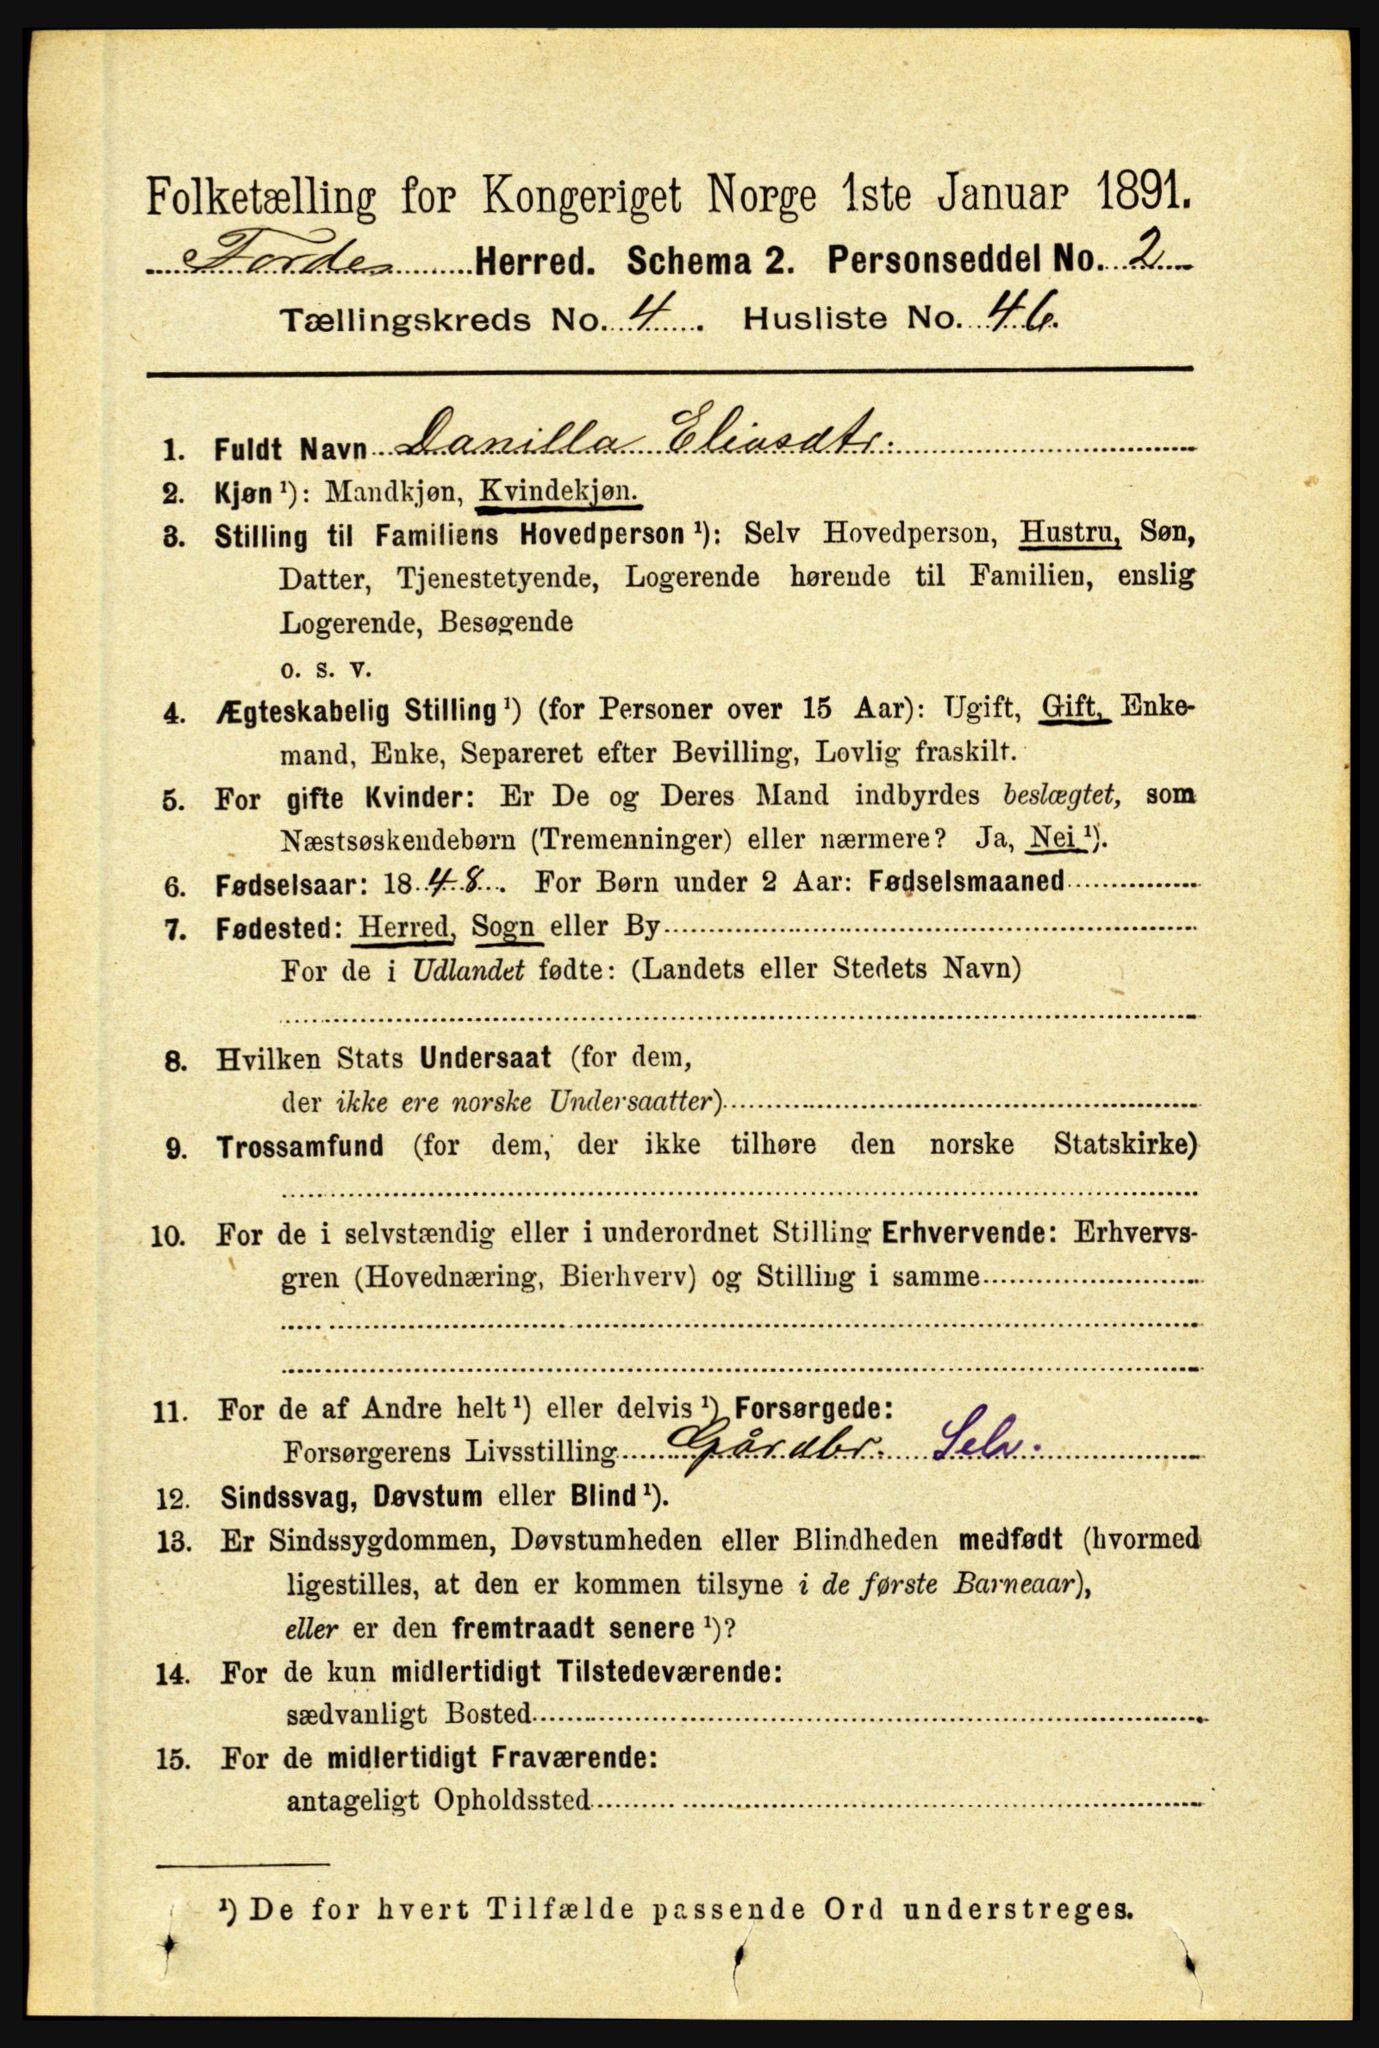 Folketælling for Kongeriget Norge 1ste Januar 1891.
Førdes Herred. Schema 2. Personseddel No. 2
Tællingskreds No. 4. Husliste No. 46.
1. Fuldt Navn Danilla Eliasdtr.
2. Kjøn ¹): Mandkjøn, Kvindekjøn.
3. Stilling til Familiens Hovedperson ¹): Selv Hovedperson, Hustru, Søn,
Datter, Tjenestetyende, Logerende hørende til Familien, enslig
Logerende, Besøgende
o. s. v.
4. Ægteskabelig Stilling ¹) (for Personer over 15 Aar): Ugift, Gift, Enke-
mand, Enke, Separeret efter Bevilling, Lovlig fraskilt.
5. For gifte Kvinder: Er De og Deres Mand indbyrdes beslægtet, som
Næstsøskendebørn (Tremenninger) eller nærmere? Ja, Nei ¹).
6. Fødselsaar: 1848. For Børn under 2 Aar: Fødselsmaaned
7. Fødested: Herred, Sogn eller By
For de i Udlandet fødte: (Landets eller Stedets Navn)
8. Hvilken Stats Undersaat (for dem,
der ikke ere norske Undersaatter)
9. Trossamfund (for dem, der ikke tilhøre den norske Statskirke)
10. For de i selvstændig eller i underordnet Stilling Erhvervende: Erhvervs-
gren (Hovednæring, Bierhverv) og Stilling i samme
11. For de af Andre helt ¹) eller delvis ¹) Forsørgede:
Forsørgerens Livsstilling Gårdbr. Selv.
12. Sindssvag, Døvstum eller Blind ¹).
13. Er Sindssygdommen, Døvstumheden eller Blindheden medfødt (hvormed
ligestilles, at den er kommen tilsyne i de første Barneaar),
eller er den fremtraadt senere ¹)?
14. For de kun midlertidigt Tilstedeværende:
sædvanligt Bosted
15. For de midlertidigt Fraværende:
antageligt Opholdssted
¹) De for hvert Tilfælde passende Ord understreges.